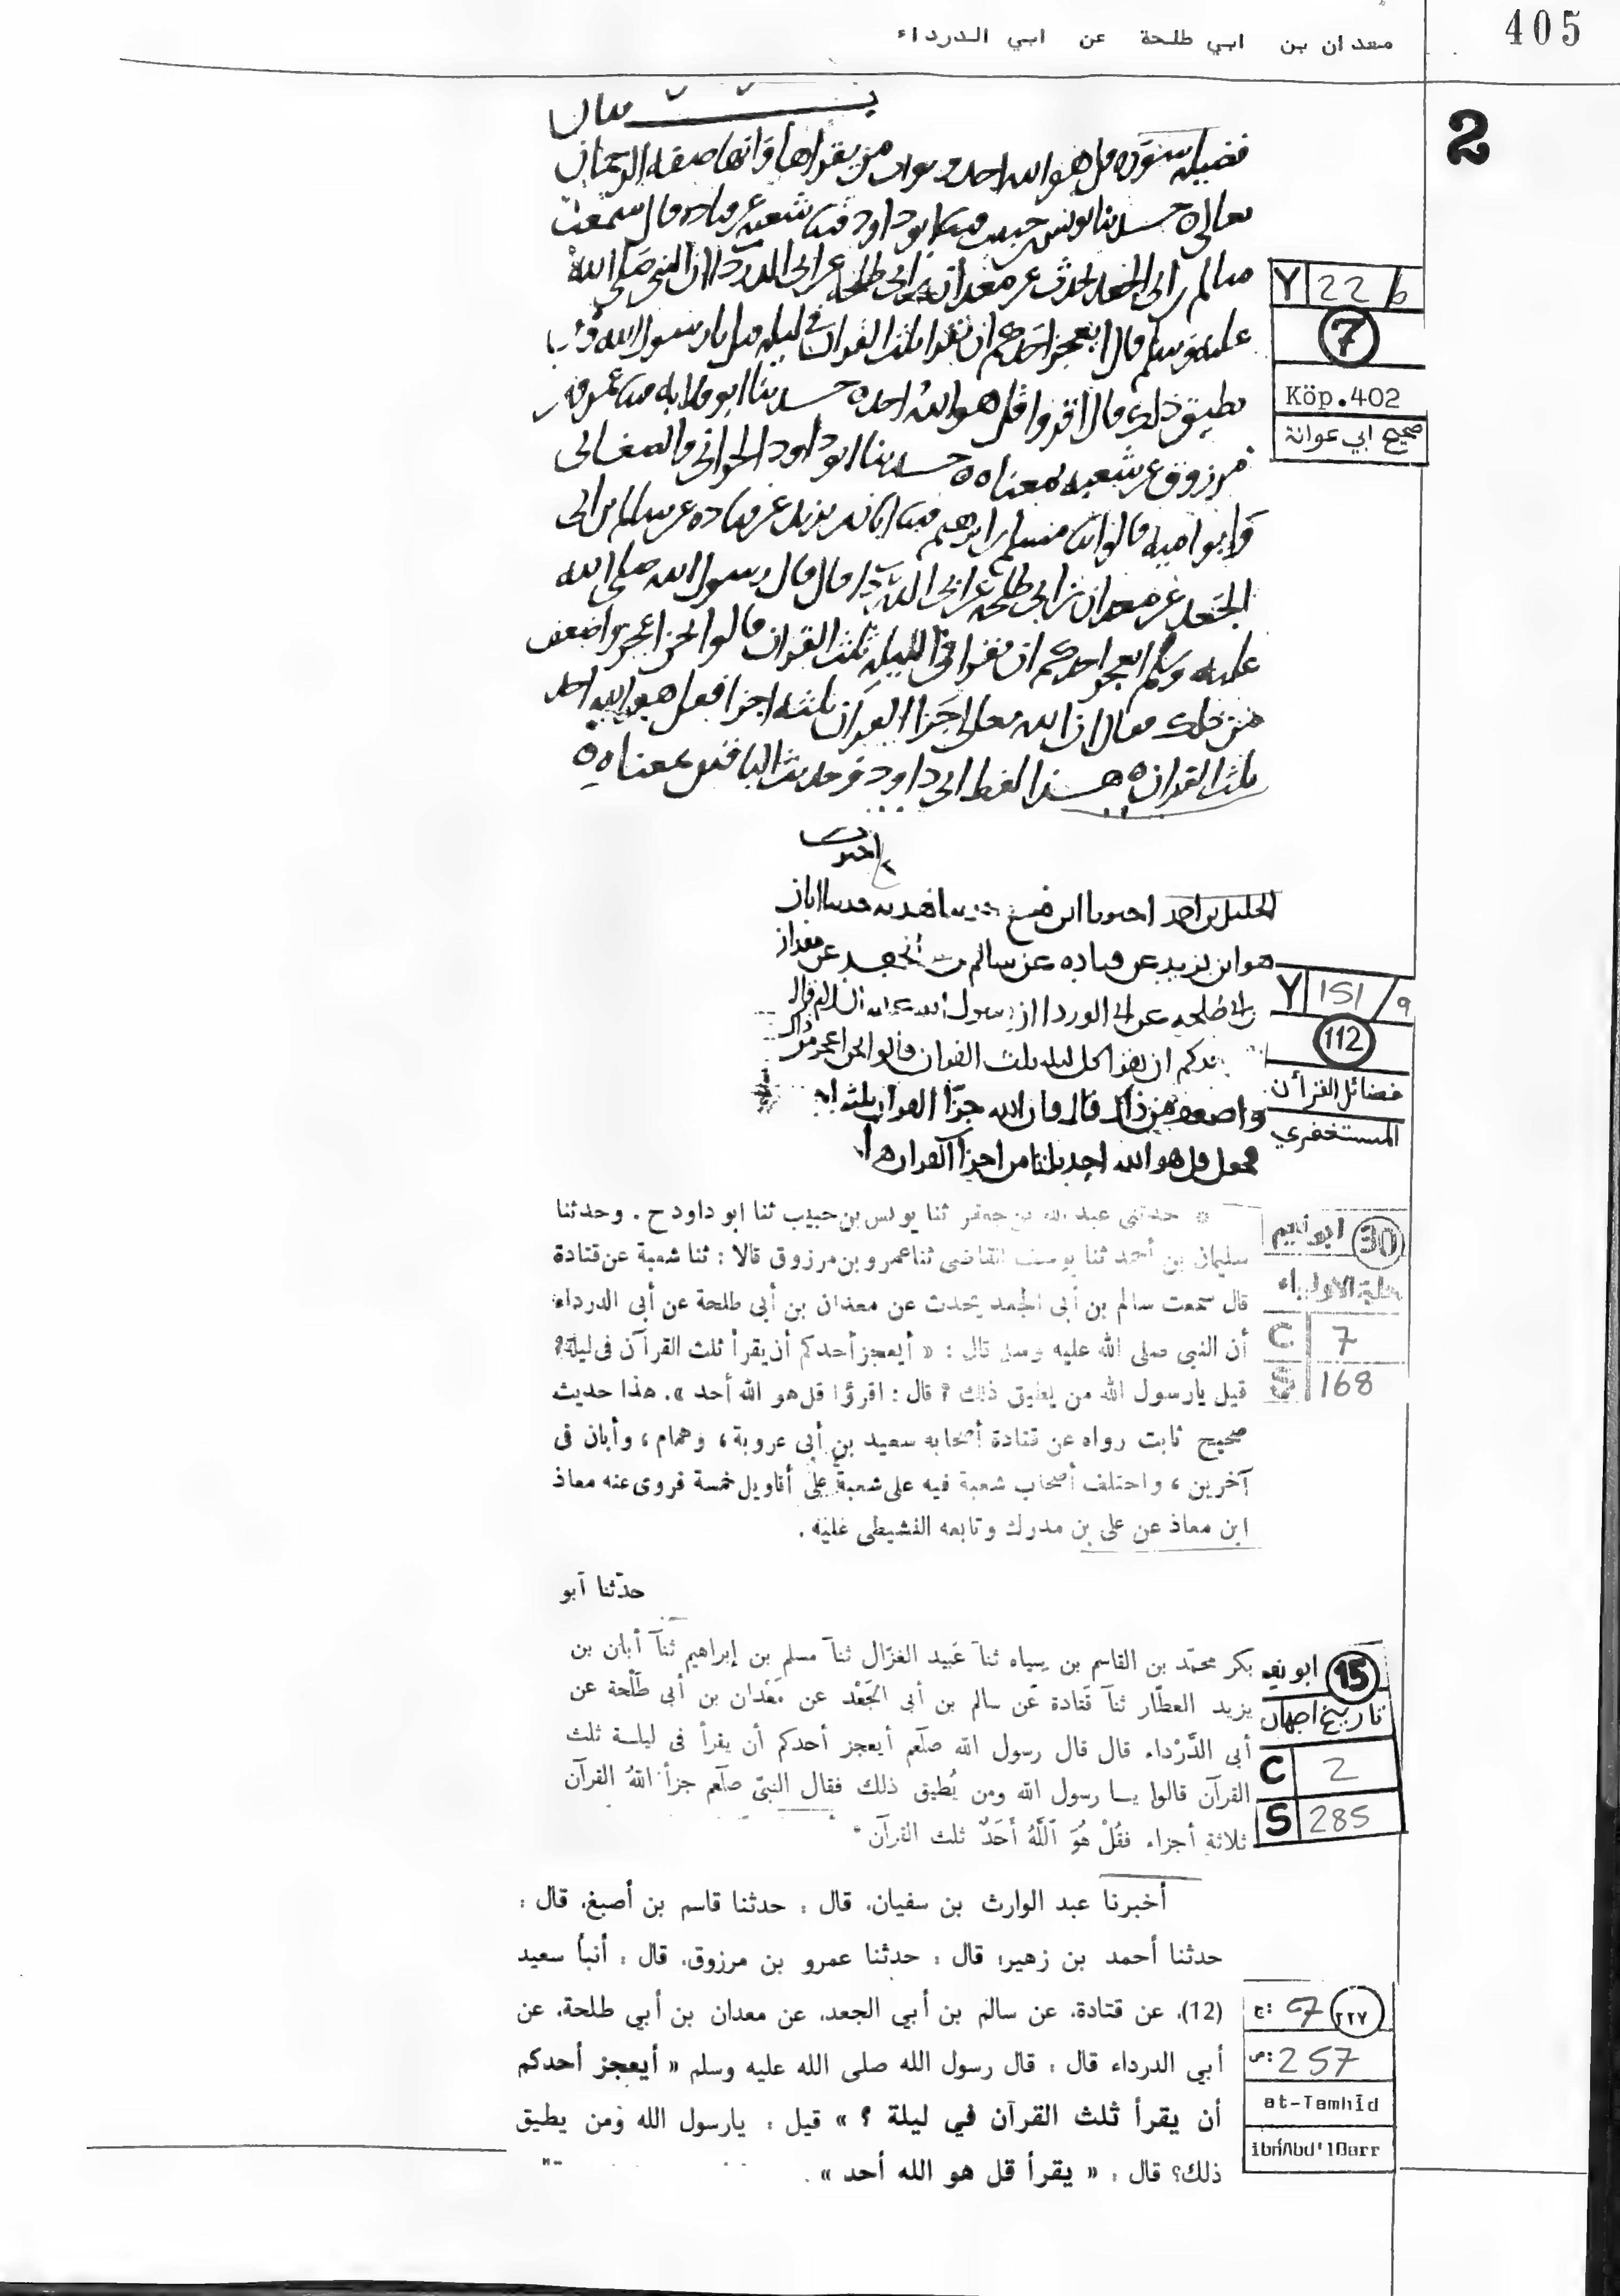 405
معدان بن ابي طلحة عن ابي الدرداء
2
بيــــان
فضيله سوره قل هو الله احد وثواب من يقراها وانها صفه الرحمان
تعالى ه حدثنا يونس بن حبيب ثنا ابو داود ثنا شعبه عن قتاده قال سمعت
سالم بن ابي الجعد يحدث عن معدان بن ابي طلحه عن ابي الدرداء ان النبي صلى الله
عليه وسلم قال ايعجز احدكم ان يقرا ثلث القران في ليله قيل يا رسول الله ومن
يطيق ذلك قال اقروا قل هو الله احد ه حدثنا ابو قلابه ثنا عمرو بن
مرزوق عن شعبه بمعناه ه حدثنا ابو داود الحراني والصغاني
وابو اميه قالوا ثنا مسلم بن ابرهيم ثنا ابان بن يزيد عن قتاده عن سالم بن ابي
الجعد عن معدان بن ابي طلحه عن ابي الدرداء قال قال رسول الله صلى الله
عليه وسلم ايعجز احدكم ان يقرا في الليله ثلث القران قالوا نحن اعجز واضعف
من ذلك فقال ان الله تعالى جزا القران ثلثه اجزا فجعل هو الله احد
ثلث القران ه هذا لفظ ابي داود وحديث الباقين بمعناه ه
Y 22/b
7
Köp.402
صحيح ابي عوانة
اخبرنا
الخليل بن احمد اخبرنا ابن منيع حدثنا هدبه حدثنا ابان
هو ابن يزيد عن قتاده عن سالم بن ابي الجعد عن معدان
بن ابي طلحه عن ابي الدرداء ان رسول الله عليه السلام قال
احدكم ان يقرا كل ليله ثلث القران قالوا نحن اعجز من ذاك
واضعف من ذاك قال فان الله جزا القران ثلثه
فجعل قل هو الله احد ثلثا من اجزا القران
Y 151/a
112
فضائل القرأن
المستغفري
* حدثنى عبد الله بن جعفر ثنا يونس بن حبيب ثنا ابو داود ح . وحدثنا
سليمان بن أحمد ثنا يوسف القاضى ثنا عمرو بن مرزوق قالا : ثنا شعبة عن قتادة
قال سمعت سالم بن أبى الجعد يحدث عن معدان بن أبى طلحة عن أبى الدرداء
أن النبى صلى الله عليه وسلم قال : « أيعجز أحدكم أن يقرأ ثلث القرآن فى ليلة؟
قيل يارسول الله من يطيق ذلك ؟ قال : اقرؤا قل هو الله أحد ». هذا حديث
صحيح ثابت رواه عن قتادة أصحابه سعيد بن أبى عروبة ، وهمام ، وأبان فى
آخرين ، واختلف أصحاب شعبة فيه على شعبة على أقاويل خمسة فروى عنه معاذ
ابن معاذ عن على بن مدرك وتابعه القشيطى عليه .
30 ابو نعيم
حلية الاولياء
C 7
S 168
حدّثنا أبو
بكر محمّد بن القاسم بن سياه ثنآ عَبيد الغزّال ثنآ مسلم بن إبراهيم ثنآ أبان بن
يزيد العطّار ثنآ قَتادة عن سالم بن أبى الجَعْد عن مَعْدان بن أبى طَلْحة عن
أبى الدَّرْداء قال قال رسول الله صلّعم أيعجز أحدكم أن يقرأ فى ليلة ثلث
القرآن قالوا يا رسول الله ومن يُطيق ذلك فقال النبىّ صلّعم جزأ اللهُ القرآن
ثلاثة أجزاء فقُلْ هُوَ ٱللَّهُ أَحَدٌ ثلث القرآن *
15 ابو نعيم
تاريخ اصبهان
C 2
S 285
أخبرنا عبد الوارث بن سفيان، قال : حدثنا قاسم بن أصبغ، قال :
حدثنا أحمد بن زهير؛ قال : حدثنا عمرو بن مرزوق، قال : أنبأ سعيد
(12)، عن قتادة، عن سالم بن أبي الجعد، عن معدان بن أبي طلحة، عن
أبي الدرداء قال : قال رسول الله صلى الله عليه وسلم « أيعجز أحدكم
أن يقرأ ثلث القرآن في ليلة ؟ » قيل : يارسول الله ومن يطيق
ذلك؟ قال : « يقرأ قل هو الله أحد » .
٢٢٧ ج: 7
ص: 257
at-Tamhīd
ibn Abd'lBarr